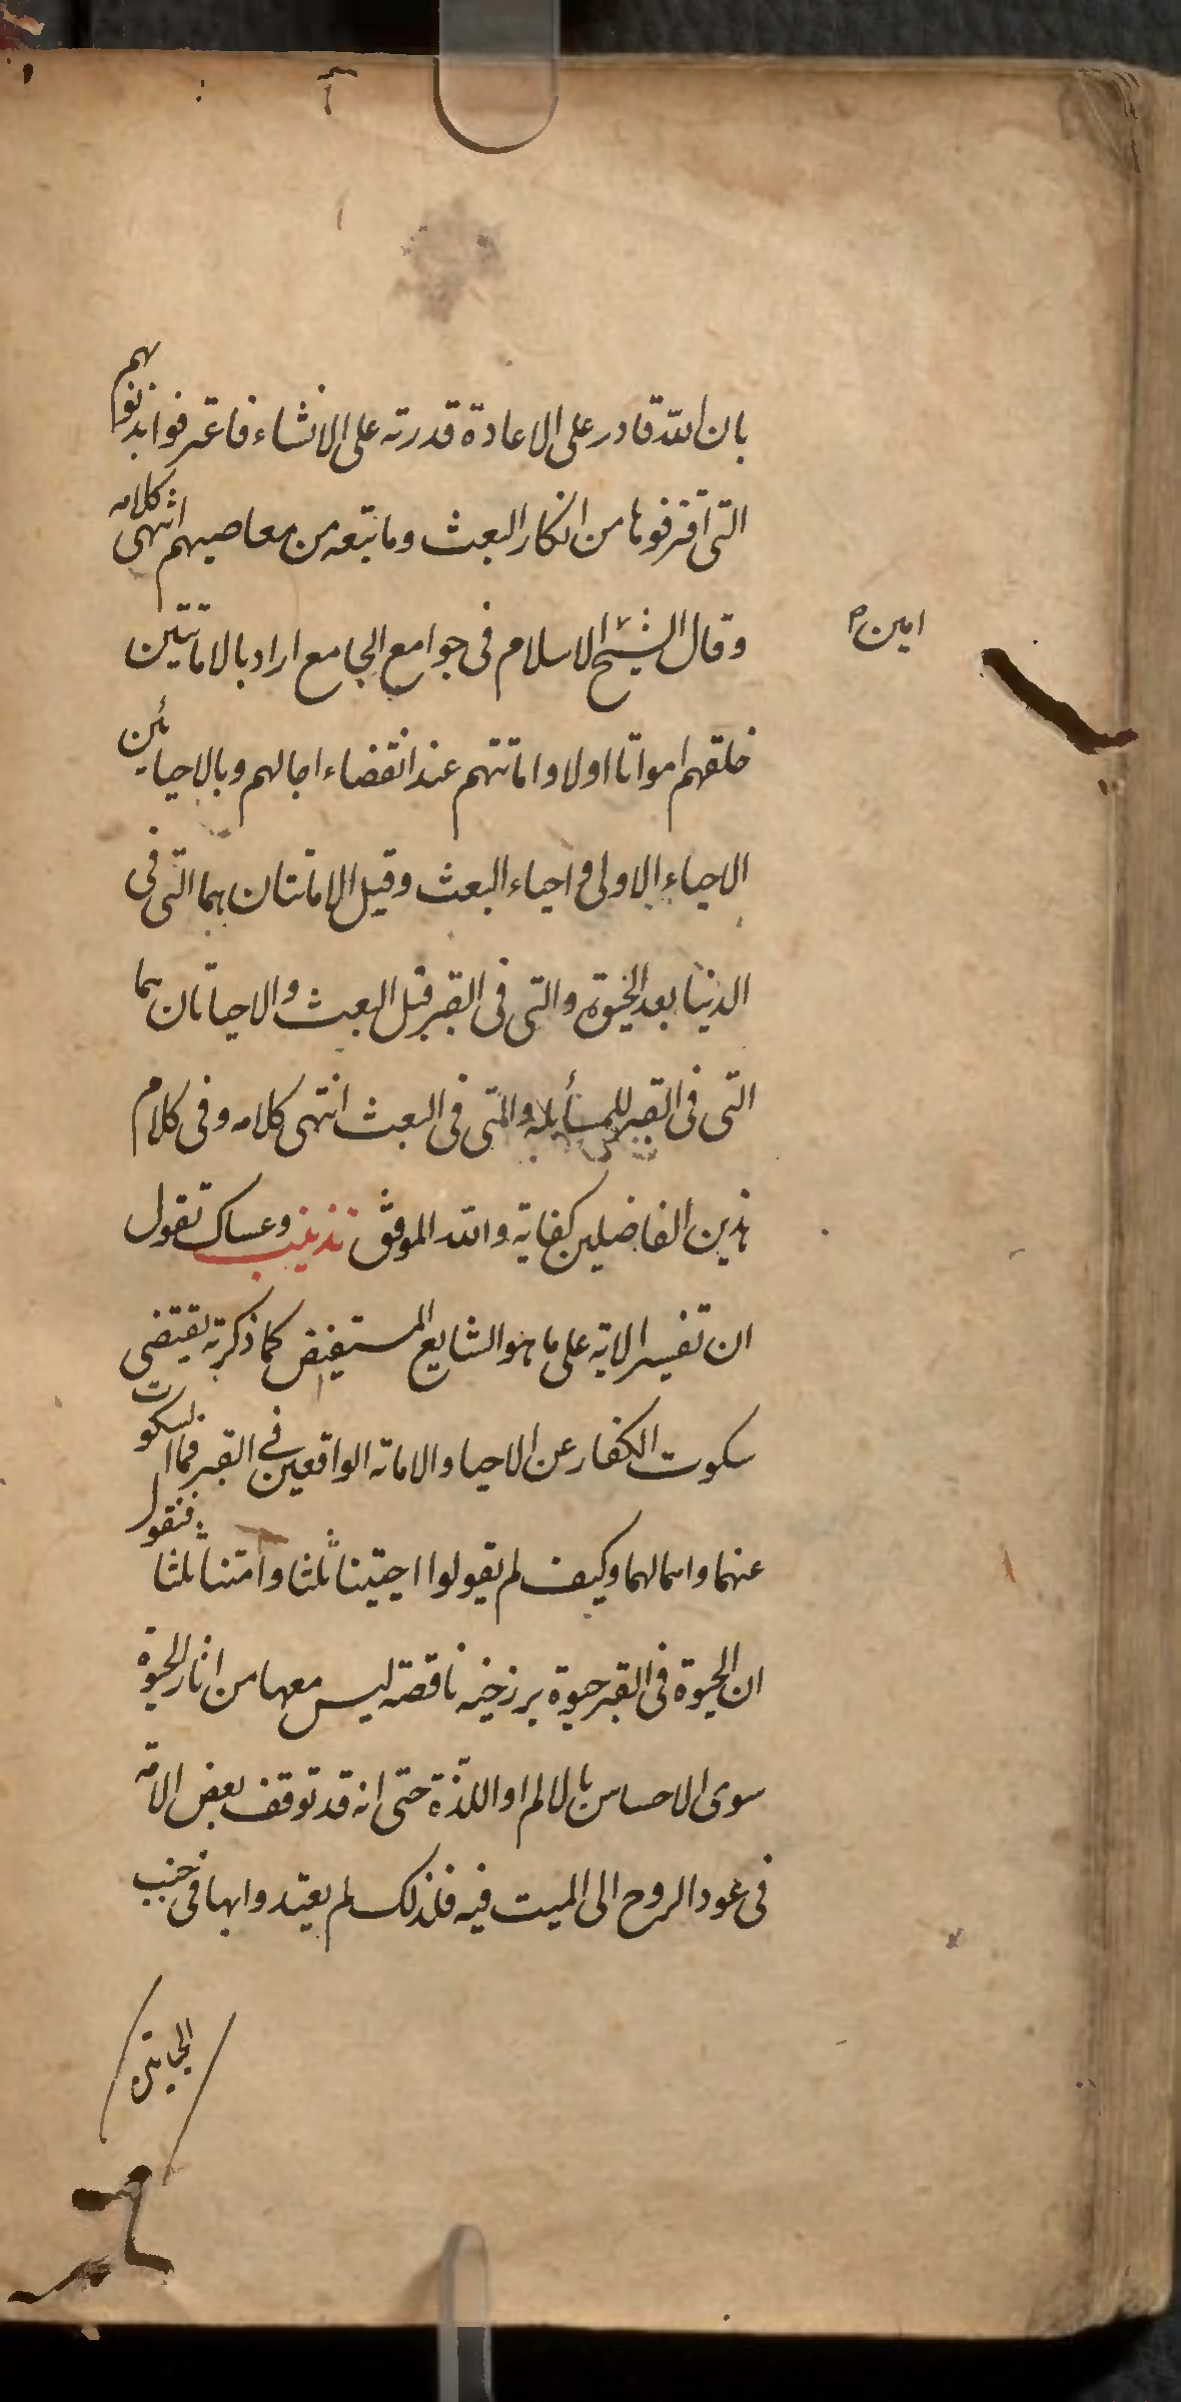 بان الله قادر على الاعادة قدرته على الانشاء فاعترفوا بذنوبهم
التى اقترفوها من انكار البعث وما تبعه من معاصيهم انتهى كلامه
وقال الشيخ الاسلام فى جوامع الجامع اراد بالاماتتين
امين
خلقهم امواتا اولا واماتتهم عند انقضاء اجالهم وبالاحيائين
الاحياء الاولى و احياء البعث وقيل الاماتتان هما التى فى
الدنيا بعد الحيوة والتى فى القبر قبل البعث والاحياتان هما
التى فى القبر للمسائلة والتى فى البعث انتهى كلامه وفى كلام
هذين الفاضلين كفاية والله الموفق تذنيب وعساك تقول
ان تفسير الاية على ما هو الشايع المستفيض كما ذكرته يقتضى
سكوت الكفار عن الاحيا والاماتة الواقعين فى القبر فما السكوت
عنهما واهمالهما وكيف لم يقولوا احييتنا ثلثا وامتنا ثلثا فنقول
ان الحيوة فى القبر حيوة برزخية ناقصة ليس معها من اثار الحيوة
سوى الاحساس بالالم او اللذة حتى انه قد توقف بعض الامة
فى عود الروح الى الميت فيه فلذلك لم يعتدوا بها فى جنب